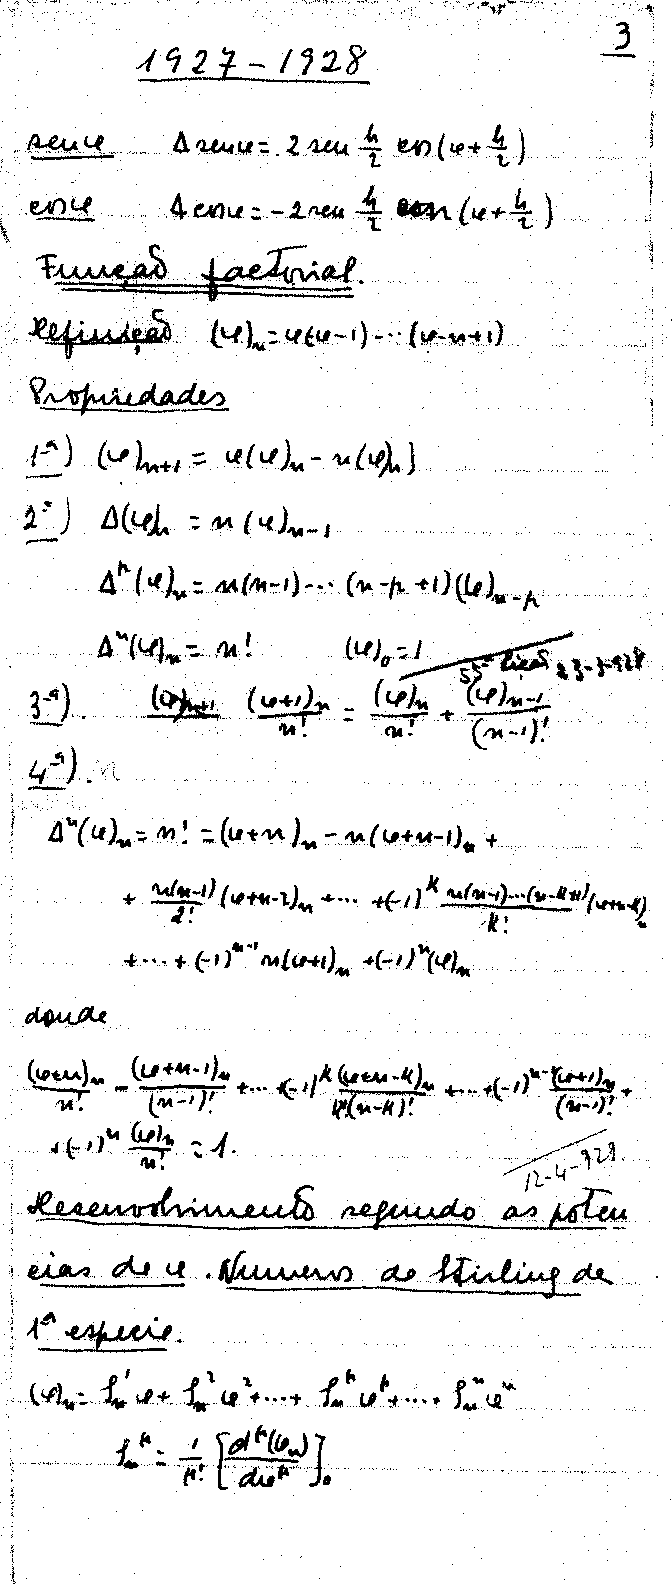 3
1927-1928
senx Δ senx = 2 sen h/2 cos(x + h/2)
cosx Δ cosx = -2 sen h/2 sen (x + h/2)
Função factorial.
Definição (x)_n = x(x-1)···(x-n+1)
Propriedades
1ª) (x)_{n+1} = x(x)_n - n(x)_n
2ª) Δ(x)_n = n(x)_{n-1}
Δ^p(x)_n = n(n-1)···(n-p+1)(x)_{n-p}
Δ^n(x)_n = n! (x)_0 = 1
55ª lição 23-3-928
3ª). (x+1)_n/n! = (x)_n/n! + (x)_{n-1}/(n-1)!
4ª).
Δ^n(x)_n = n! = (x+n)_n - n(x+n-1)_n +
+ n(n-1)/2! (x+n-2)_n + ··· + (-1)^k n(n-1)···(n-k+1)/k! (x+n-k)_n
+ ··· + (-1)^{n-1} n(x+1)_n + (-1)^n (x)_n
donde
(x+n)_n/n! - (x+n-1)_n/(n-1)! + ··· + (-1)^k (x+n-k)_n/k!(n-k)! + ··· + (-1)^{n-1} (x+1)_n/(n-1)! +
+ (-1)^n (x)_n/n! = 1.
12-4-928.
Desenvolvimento segundo as poten
cias de x. Numeros de Stirling de
1ª especie.
(x)_n = S_n^1 x + S_n^2 x^2 + ··· + S_n^p x^p + ··· + S_n^n x^n
S_n^p = 1/p! [d^p(x)_n/dx^p]_0